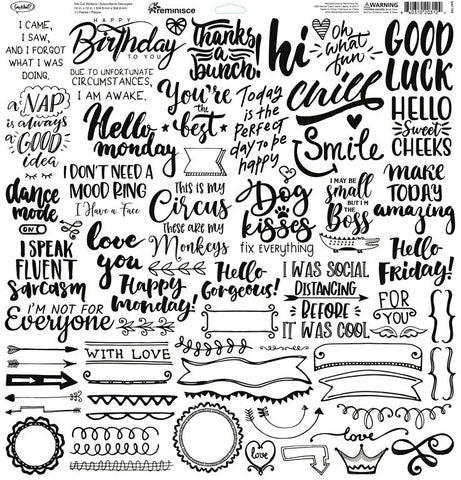 Reminisce
Die Cut Stickers
I CAME,
I SAW,
AND I FORGOT
WHAT I WAS
DOING.
HAPPY
Birthday
TO YOU
Thanks
a bunch!
hi
oh
what
fun
GOOD
LUCK
DUE TO UNFORTUNATE
CIRCUMSTANCES,
I AM AWAKE.
a NAP
is always
a GOOD
idea
You're
the
best
Today
is the
perfect
day to be
happy
chill
HELLO
Sweet
CHEEKS
Hello
monday
Smile
I DON'T NEED A
MOOD RING
I Have a Face
This is my
Circus
these are my
Monkeys
Dog
kisses
fix EVERYTHING
I MAY BE
small
BUT I'M
the
Boss
make
TODAY
amazing
dance
mode
ON
love
you
I SPEAK
FLUENT
Sarcasm
Happy
monday!
Hello
Gorgeous!
I WAS SOCIAL
DISTANCING
BEFORE
IT WAS COOL
Hello
Friday!
I'M NOT FOR
Everyone
FOR
YOU
WITH LOVE
love
love